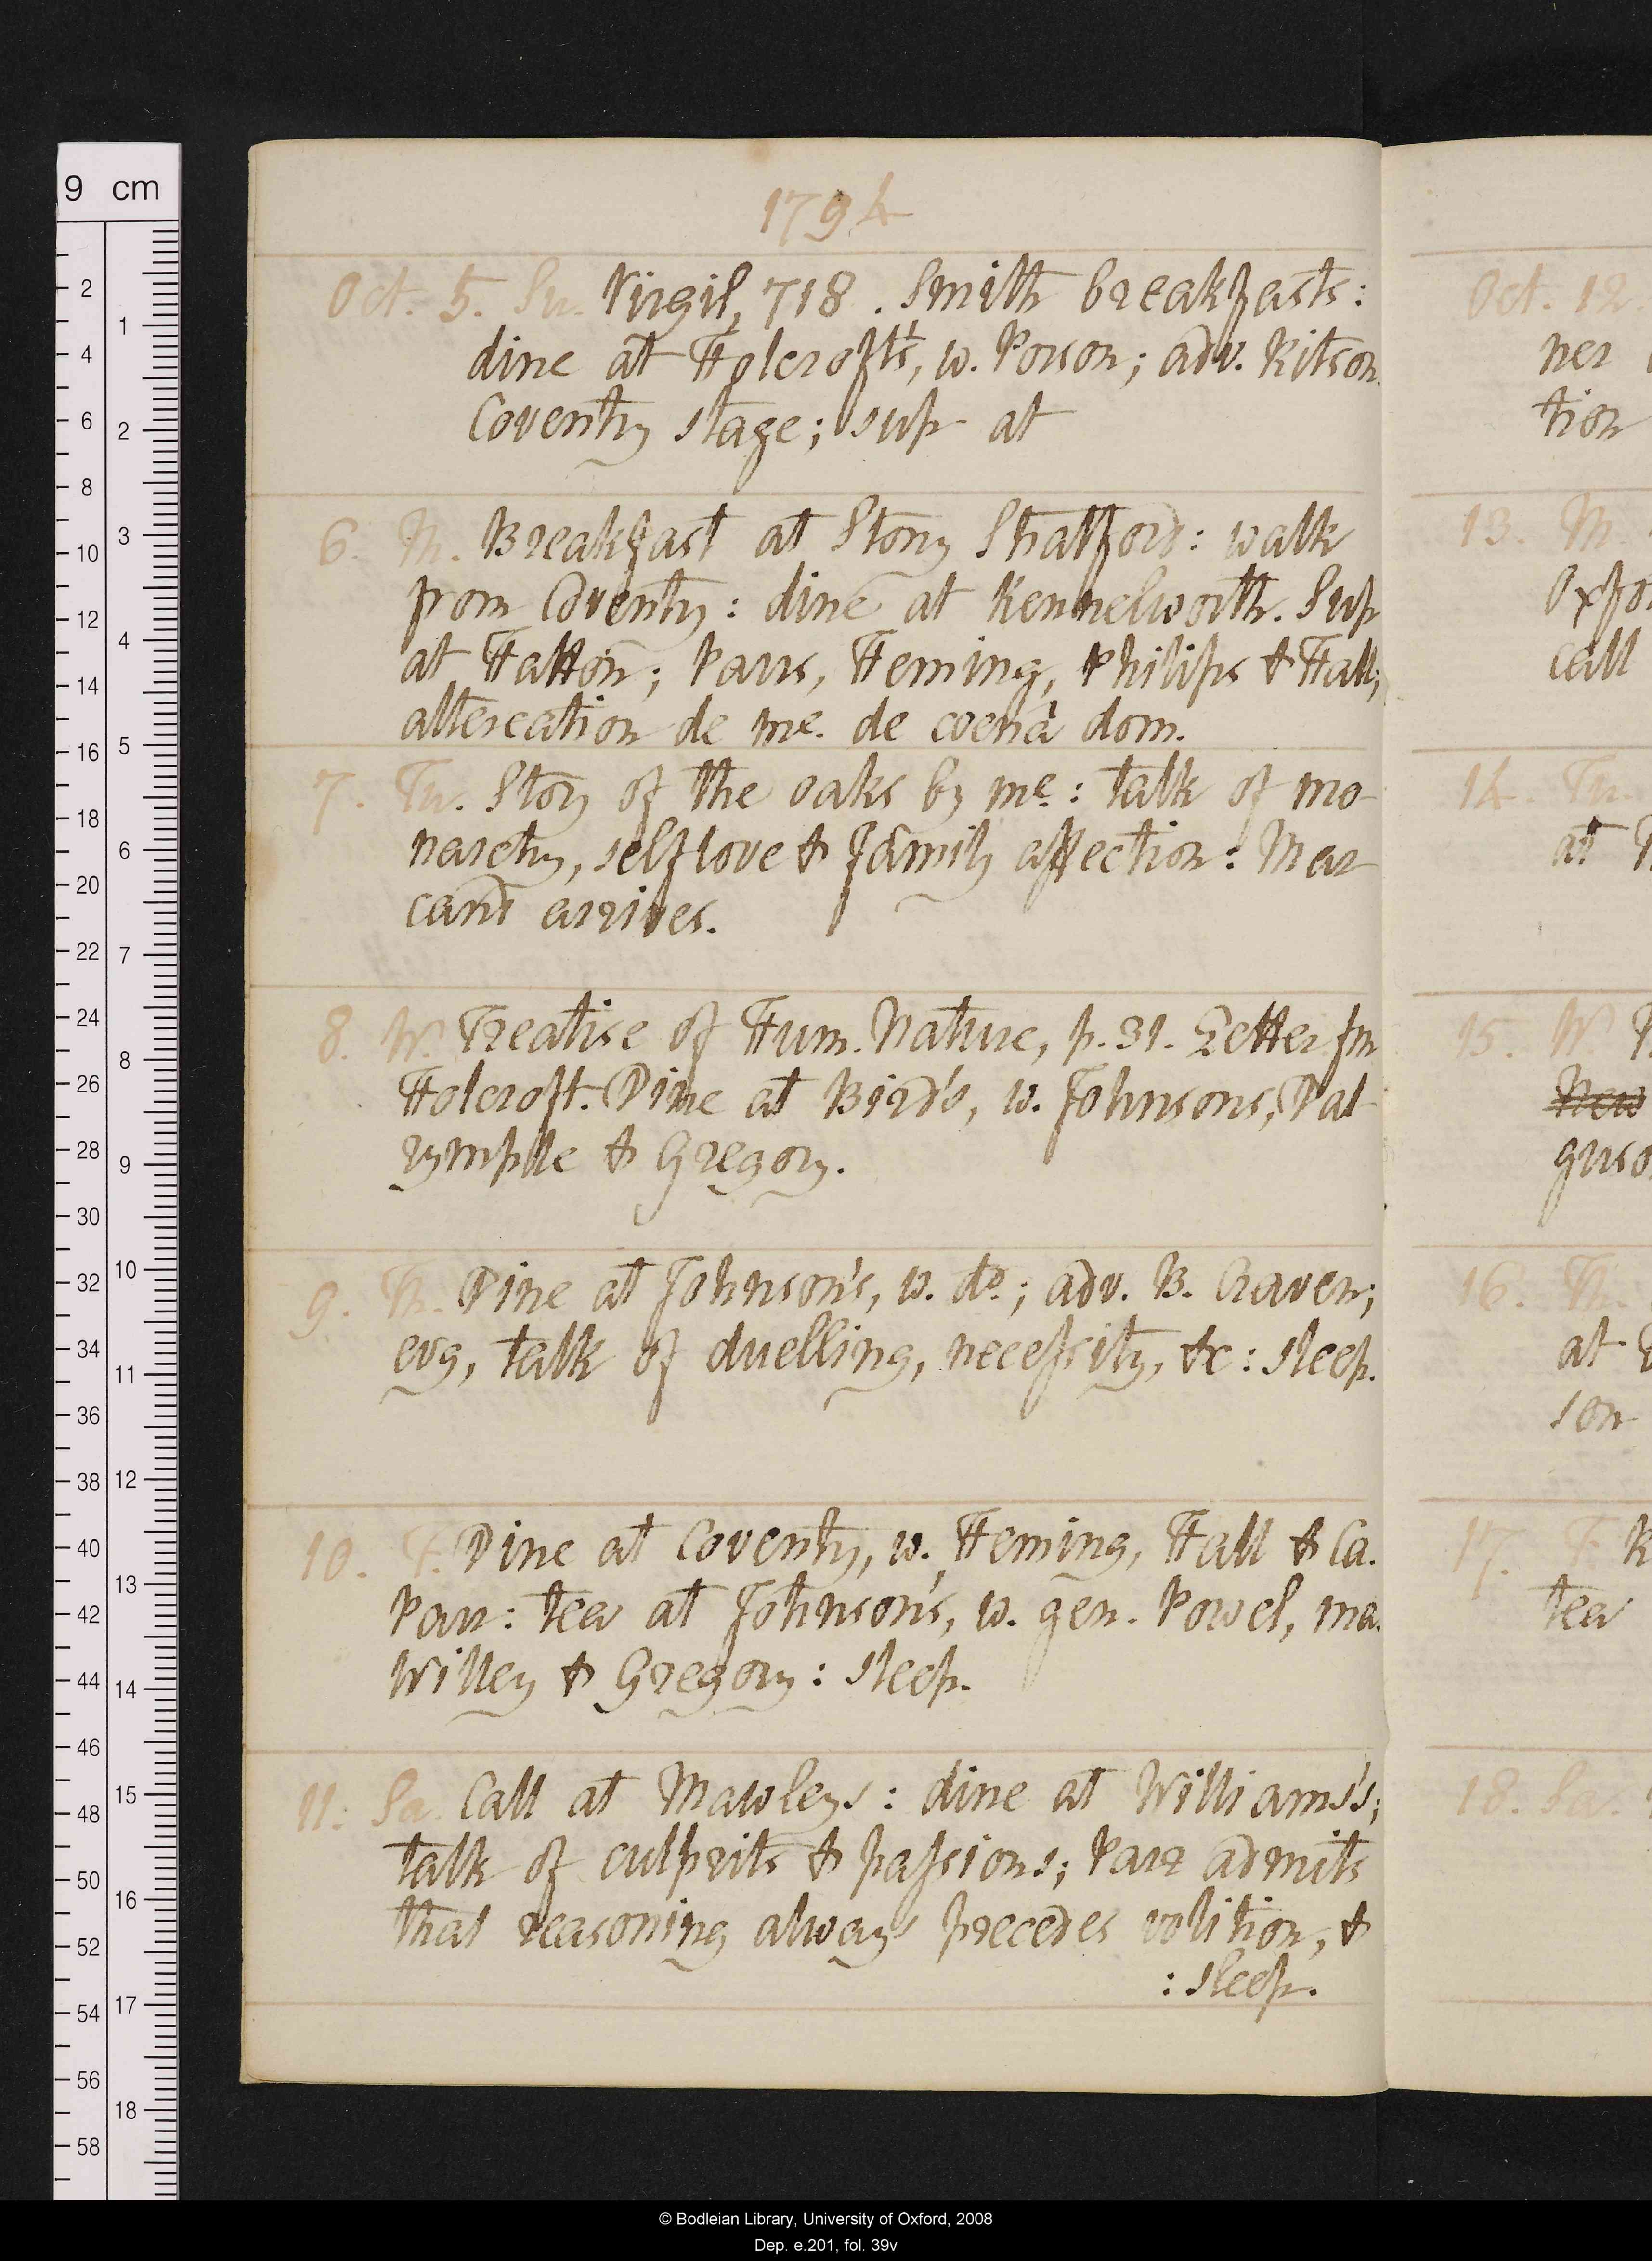 1794
Oct. 5. Su. Virgil, 718. Smith breakfasts:
dine at Holcroft's, w. Porson; adv. Ritson.
Coventry stage; sup at
6. M. Breakfast at Stony Stratford: walk
from Coventry: dine at Kennelworth. Sup
at Hatton; Parrs, Heming, Philips & Hall;
altercation de me. de coenâ dom.
7. Tu. Story of the oaks by me: talk of mo-
narchy, self love & family affection: Mar
cand arrives.
8. W. Treatise of Hum. Nature, p. 31. Letter fm
Holcroft. Dine at Bird's, w. Johnsons, Dal
rymple & Gregory.
9. Th. Dine at Johnson's, w. do; adv. B. Craven;
evg, talk of duelling, necessity, &c: sleep.
10. F. Dine at Coventry, w. Heming, Hall & Ca.
Parr: tea at Johnson's, w. gen. Powel, ma.
Willey & Gregory: sleep.
11. Sa. Call at Mawleys: dine at Williams's;
talk of culprits & passions; Parr admits
that reasoning always precedes volition, &
: sleep.
Oct. 12.
ner
tion
13. M.
Oxfo
call
14. Tu.
at
15. W.
New
guso
16. Th.
at
son
17. F. R
tea
18. Sa.
9 cm
2
1
4
6
2
8
3
10
12
4
14
16
5
18
6
20
22
7
24
8
26
28
9
30
10
32
34
11
36
38
12
40
13
42
44
14
46
15
48
50
16
52
54
17
56
18
58
© Bodleian Library, University of Oxford, 2008
Dep. e.201, fol. 39v